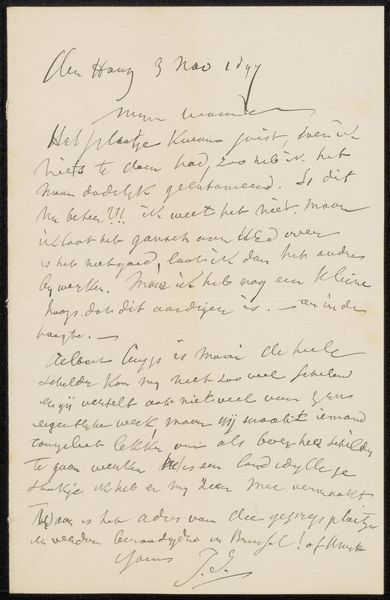 den Haag 3 Nov 1897
Mijn waarde
Het plaatje kwam juist, toen ik
niets te doen had, zoo heb ik het
maar dadelijk geentameerd. Is dit
nu beter?!! ik weet het niet. maar
ik laat het gansch aan UEd over
is het niet goed, laat ik dan het andere
bywerken. Maar ik heb nog een kleine
hoop, dat dit aardiger is. —
Aelbert Cuyp is maar de heele
schilder kon my niet zoo veel schelen
en zy vertelt ook niet veel van zyn
eigentlyke werk maar zy maakt iemand
lekker om als boer
te gaan werken is een landidylle
stukje ik heb er my zeer mee vermaakt
is het adres van die
in Brussel! of
Yours